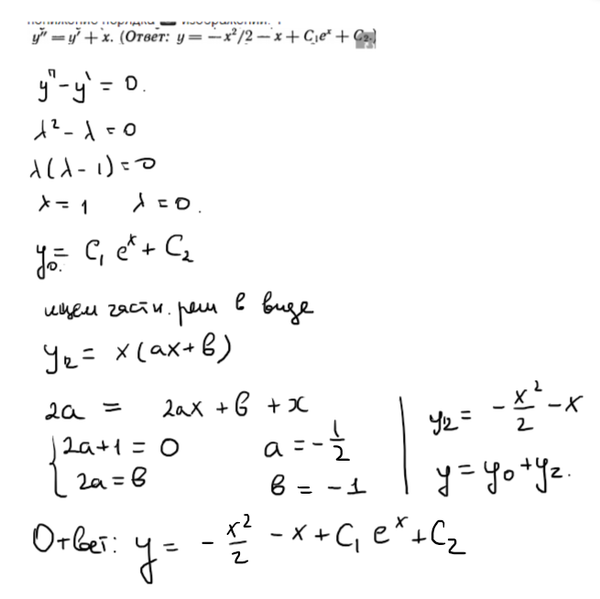 y″ = y′ + x. (Ответ: y = −x²/2 − x + C₁eˣ + C₂.)
y″ − y′ = 0.
λ² − λ = 0
λ(λ − 1) = 0
λ = 1 λ = 0.
y₀ = C₁ eˣ + C₂
ищем частн. реш в виде
y₂ = x(ax+b)
2a = 2ax + b + x
{ 2a+1 = 0 a = −1/2
2a = b b = −1
y₂ = −x²/2 − x
y = y₀ + y₂.
Ответ: y = −x²/2 − x + C₁ eˣ + C₂